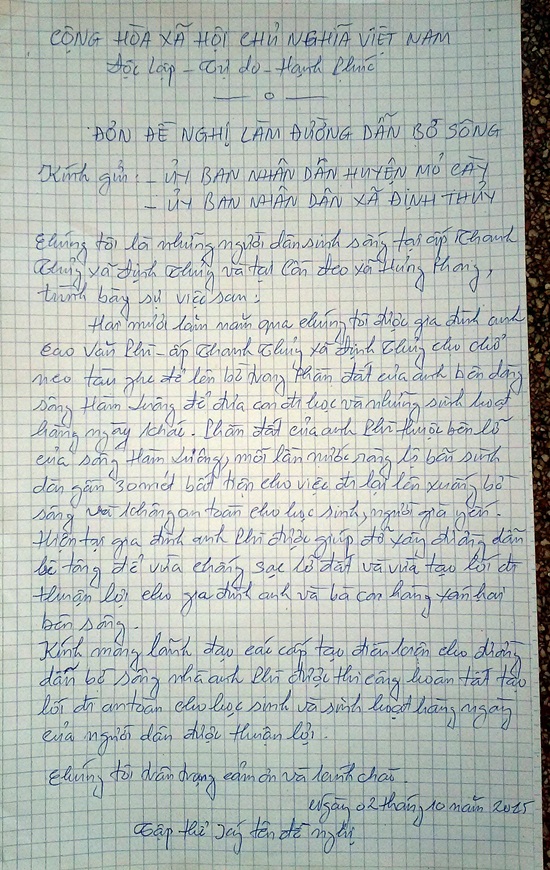 CỘNG HÒA XÃ HỘI CHỦ NGHĨA VIỆT NAM
Độc Lập - Tự do - Hạnh Phúc
— o —
ĐƠN ĐỀ NGHỊ LÀM ĐƯỜNG DẪN BỜ SÔNG
Kính gửi: - ỦY BAN NHÂN DÂN HUYỆN MỎ CÀY
- ỦY BAN NHÂN DÂN XÃ ĐỊNH THỦY
Chúng tôi là những người dân sinh sống tại ấp Thanh
Thủy xã Định Thủy và tại Cồn đeo xã Hưng Phong,
trình bày sự việc sau:
Hai mươi lăm năm qua chúng tôi được gia đình anh
Cao Văn Phi - ấp Thanh Thủy xã Định Thủy cho chổ
neo tàu ghe để lên bờ trong phần đất của anh bên dòng
sông Hàm Luông để đưa con đi học và những sinh hoạt
hằng ngày khác. Phần đất của anh Phi thuộc bên lỡ
của sông Hàm Luông, mỗi lần nước ròng lộ bãi sình
dài gần 30mét bất tiện cho việc đi lại lên xuống bờ
sông và không an toàn cho học sinh, người già yếu.
Hiện tại gia đình anh Phi được giúp đỡ xây đường dẫn
bê tông để vừa chống sạc lỡ đất và vừa tạo lối đi
thuận lợi cho gia đình anh và bà con hàng xóm hai
bên sông.
Kính mong lãnh đạo các cấp tạo điều kiện cho đường
dẫn bờ sông nhà anh Phi được thi công hoàn tất tạo
lối đi an toàn cho học sinh và sinh hoạt hằng ngày
của người dân được thuận lợi.
Chúng tôi trân trọng cảm ơn và kính chào.
Ngày 02 tháng 10 năm 2015
Tập thể ký tên đề nghị